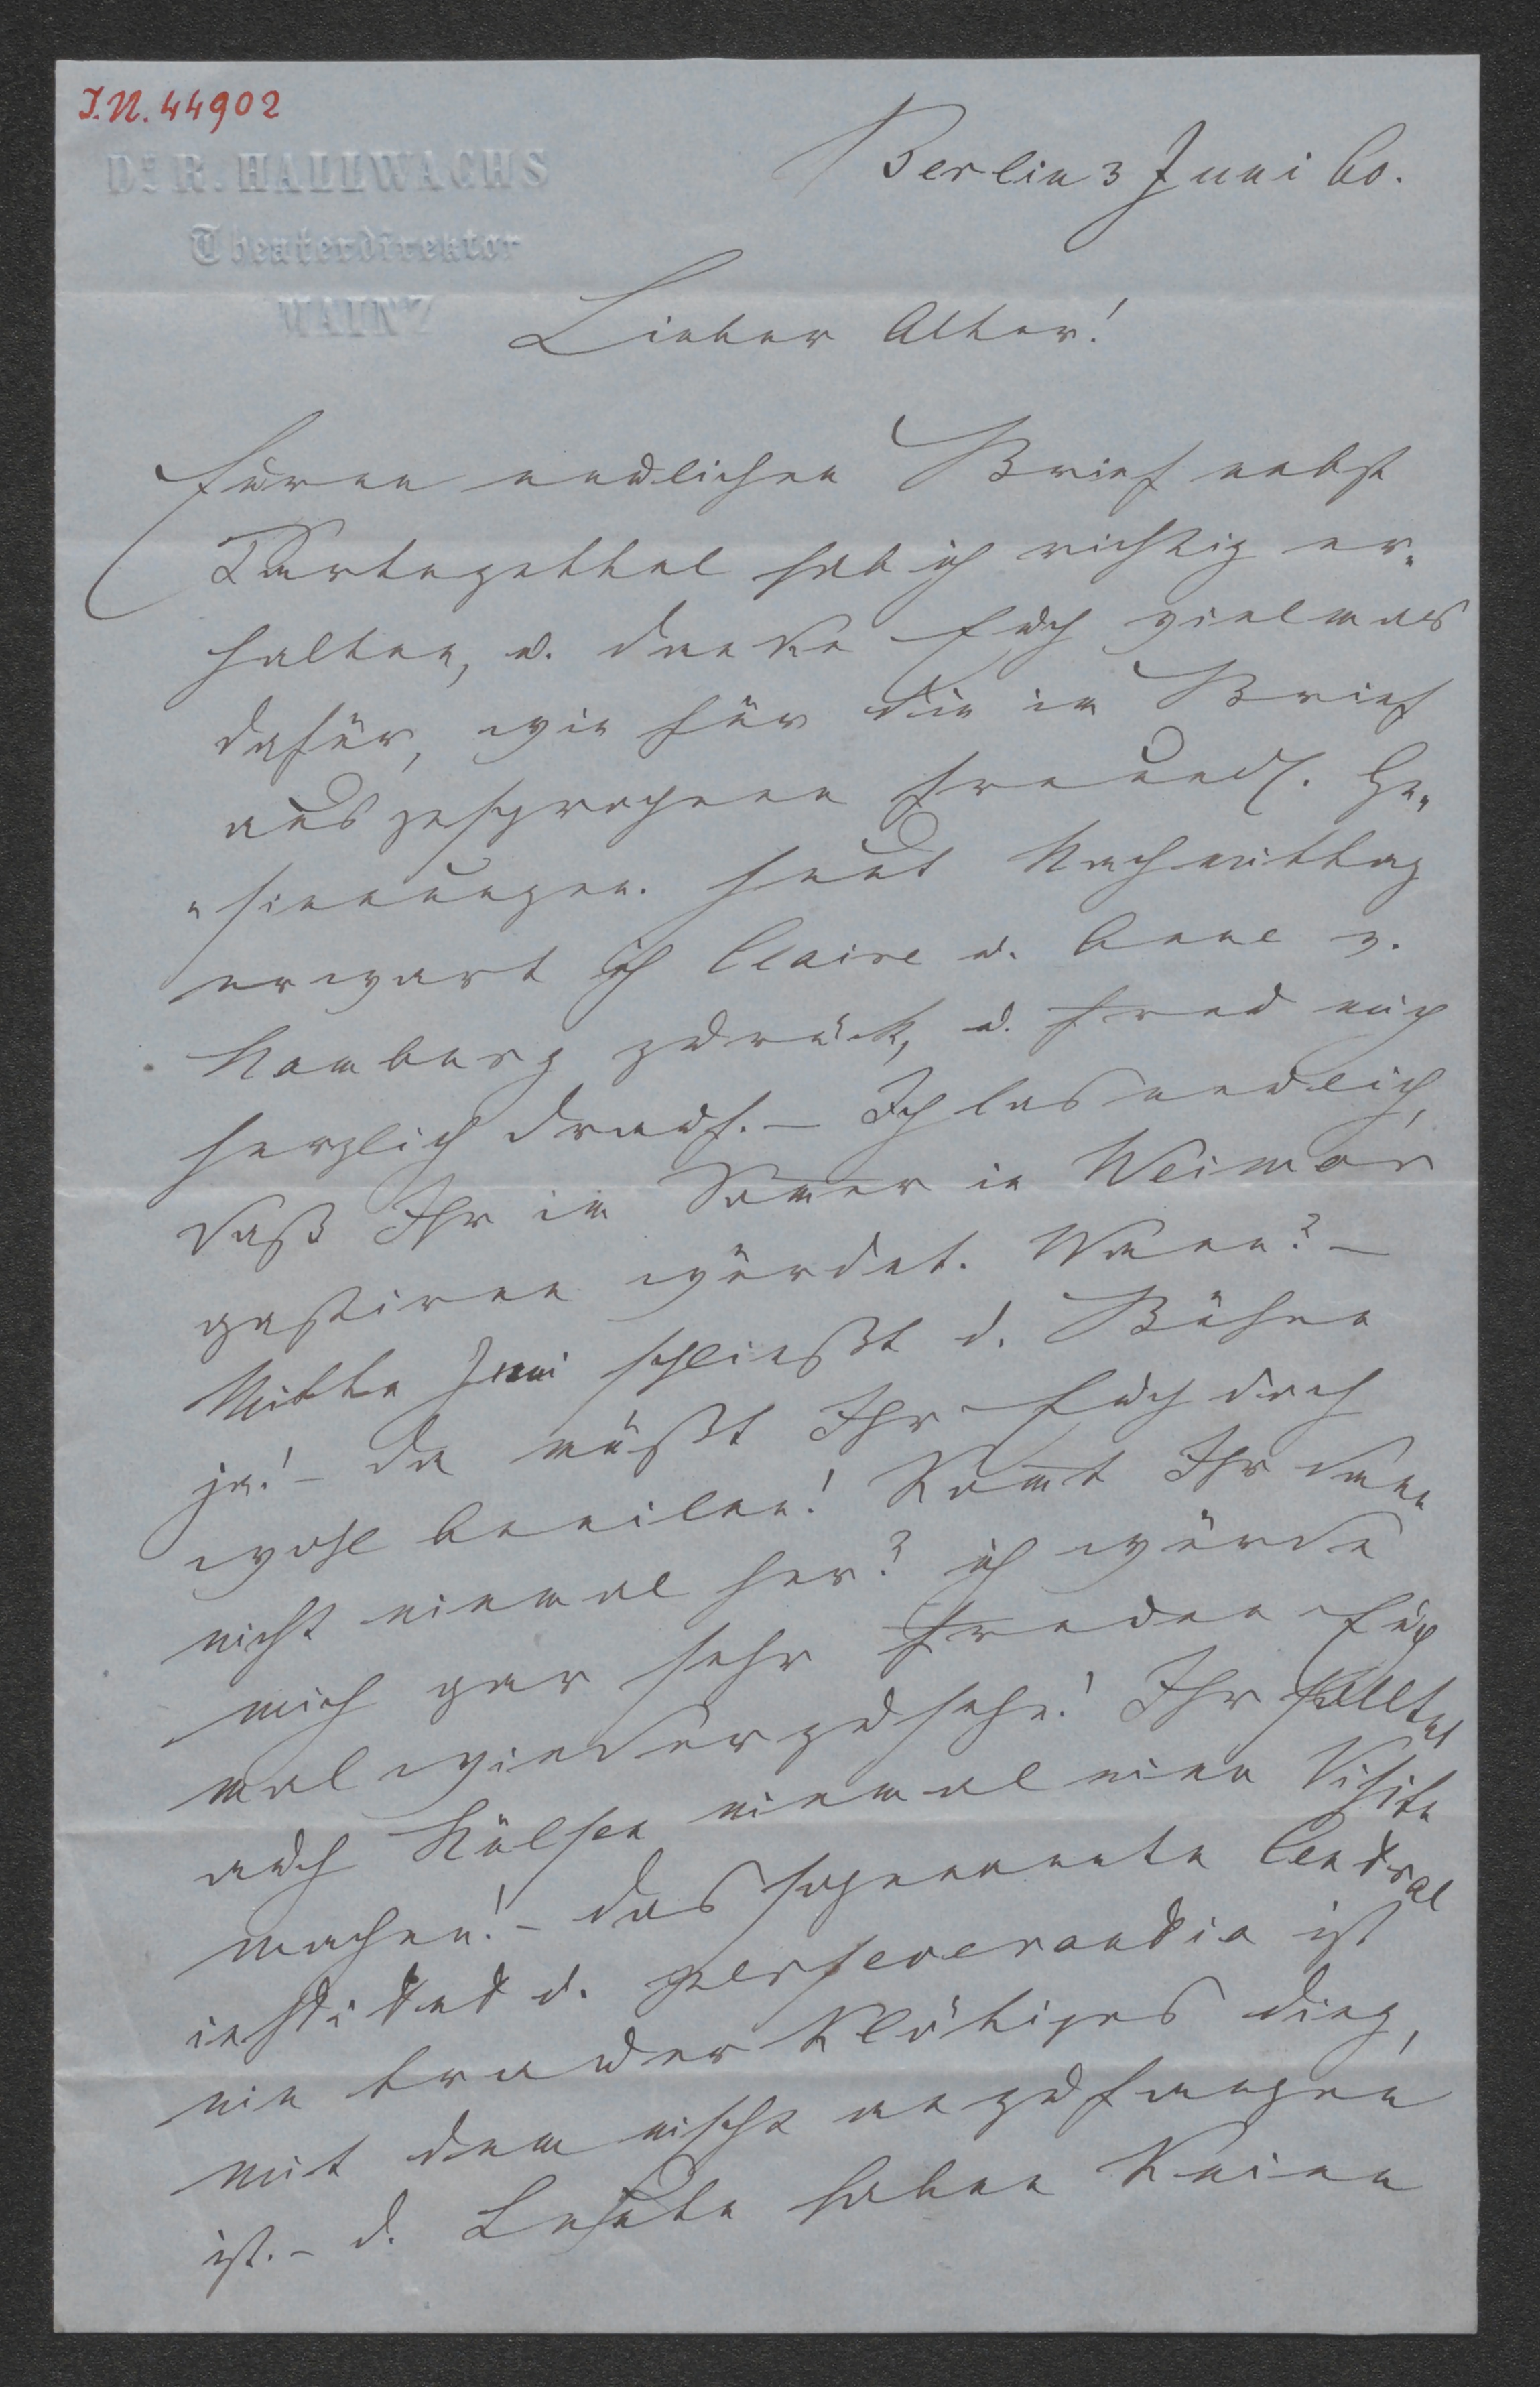 I.N. 44902
Dr. R. HALLWACHS
Theaterdirektor
MAINZ
Berlin 3 Juni 60.
Lieber Alter!
Euren neulichen Brief nebst
hab ich richtig er-
halten, u. danke Euch vielmals
dafür, wie für die im Brief
ausgesprochenen freundl. Ge-
-sinnungen. Heut Nachmittag
erwart ich Claire u. v.
Hamburg zurück, u. freu mich
herzlich drauf. – Ich las neulich,
daß Ihr im Som̄er in Weimar
gastiren würdet. Wann? –
Mitte Juni schließt d. Bühne
ja! – da müßt Ihr Euch doch
wohl beeilen! Kom̄t Ihr dann
nicht einmal her? ich würde
mich gar sehr freuen Euch
mal wiederzusehn! Ihr solltet
auch Hülsen einmal eine Visite
machen! – das sogenannte Central
institut d. perseverantia ist
ein Ding,
mit dem nischt anzufangen
ist. – d. Leute haben Keine